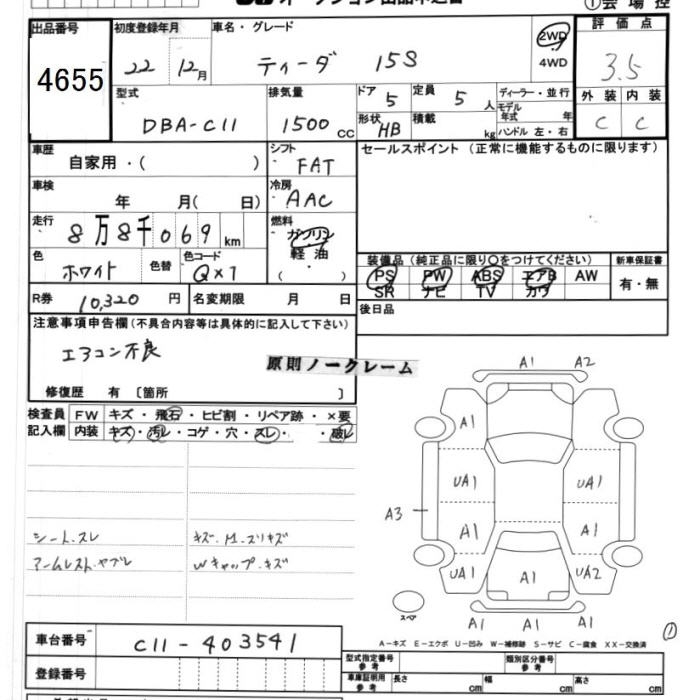 オークション出品申込書
①会場控
出品番号 初度登録年月 車名・グレード 評価点
4655 22 12月 ティーダ 15S 2WD 3.5
4WD
型式 排気量 ドア 5 定員 5人 ディーラー・並行 外装 内装
DBA-C11 1500cc 形状 HB 積載 kg モデル年式 年 C C
ハンドル 左・右
車歴 自家用・( ) シフト FAT セールスポイント(正常に機能するものに限ります)
車検 年 月( 日) 冷房 AAC
走行 8万8千069km 燃料 ガソリン
軽油
・
( )
色 ホワイト 色替 色コード QX1
装備品(純正品に限り○をつけてください) 新車保証書
PS PW ABS エアB AW 有・無
SR ナビ TV カワ
R券 10,320円 名変期限 月 日 後日品
注意事項申告欄(不具合内容等は具体的に記入して下さい)
エアコン不良
原則ノークレーム
修復歴 有 〔箇所 〕
検査員 FW キズ・飛石・ヒビ割・リペア跡・×要
記入欄 内装 キズ・汚レ・コゲ・穴・スレ・ ・破レ
シート.スレ キズ.M.スリキズ
アームレスト.ヤブレ Wキャップ.キズ
A1 A2
A1
UA1 UA1
A3 A1 A1
UA1 A1 UA2
A1 A1 A1
スペア
①
A-キズ E-エクボ U-凹み W-補修跡 S-サビ C-腐食 XX-交換済
車台番号 C11-403541
型式指定番号 参考 類別区分番号 参考
登録番号
車庫証明用 参考 長さ cm 幅 cm 高さ cm